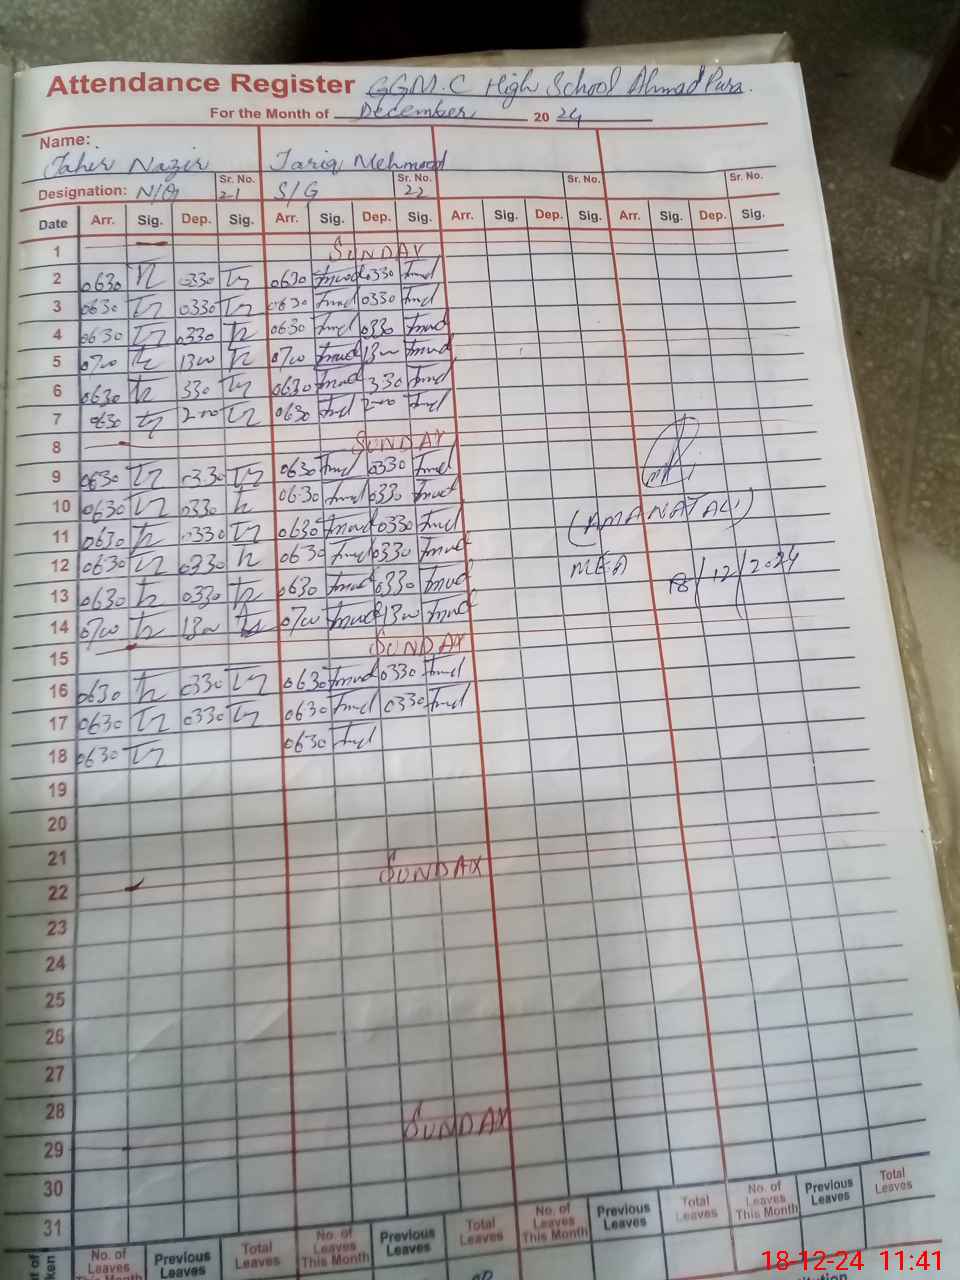 Attendance Register GGM.C High School AhmadPura.
For the Month of December 2024
Name: Taher Nazir Tariq Mehmood
Designation: N/Q Sr. No. 21 S/G Sr. No. 22 Sr. No. Sr. No.
Date Arr. Sig. Dep. Sig. Arr. Sig. Dep. Sig. Arr. Sig. Dep. Sig. Arr. Sig. Dep. Sig.
1 SUNDAY
2 0630 0330 0630 0330
3 0630 0330 0630 0330
4 0630 0330 0630 0330
5 0700 1300 0700 1300
6 0630 330 0630 330
7 0630 200 0630 200
8 SUNDAY
9 0630 0330 0630 0330
10 0630 0330 0630 0330
11 0630 0330 0630 0330
(AMANAT ALI)
12 0630 0330 0630 0330
MEA 18/12/2024
13 0630 0330 0630 0330
14 0700 1300 0700 1300
15 SUNDAY
16 0630 0330 0630 0330
17 0630 0330 0630 0330
18 0630 0630
19
20
21
22 SUNDAY
23
24
25
26
27
28
29 SUNDAY
30
31
No. of Leaves This Month Previous Leaves Total Leaves No. of Leaves This Month Previous Leaves Total Leaves No. of Leaves This Month Previous Leaves Total Leaves No. of Leaves This Month Previous Leaves Total Leaves
18-12-24 11:41